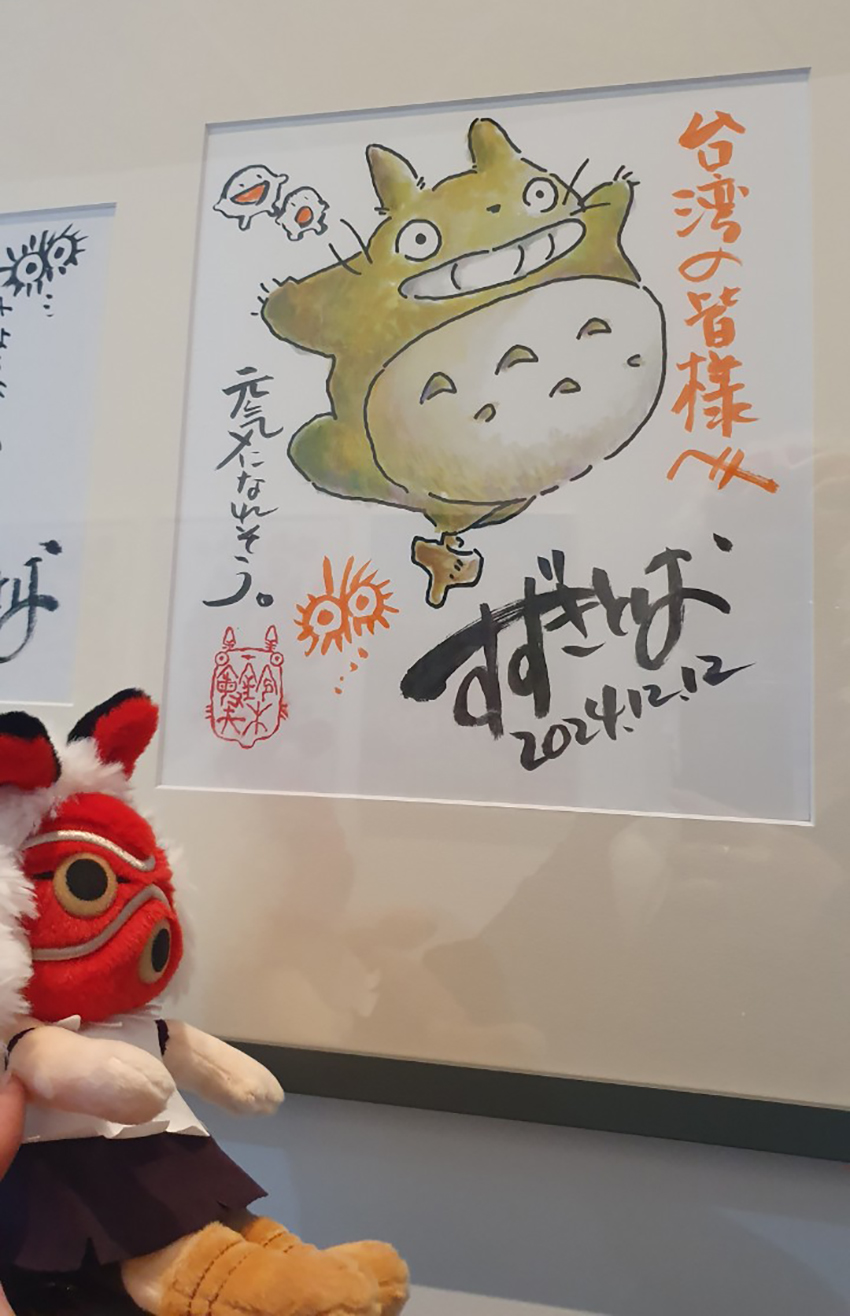 台湾の皆様へ
元気になれそう。
すずきとしお
2024.12.12
鈴木
敏夫